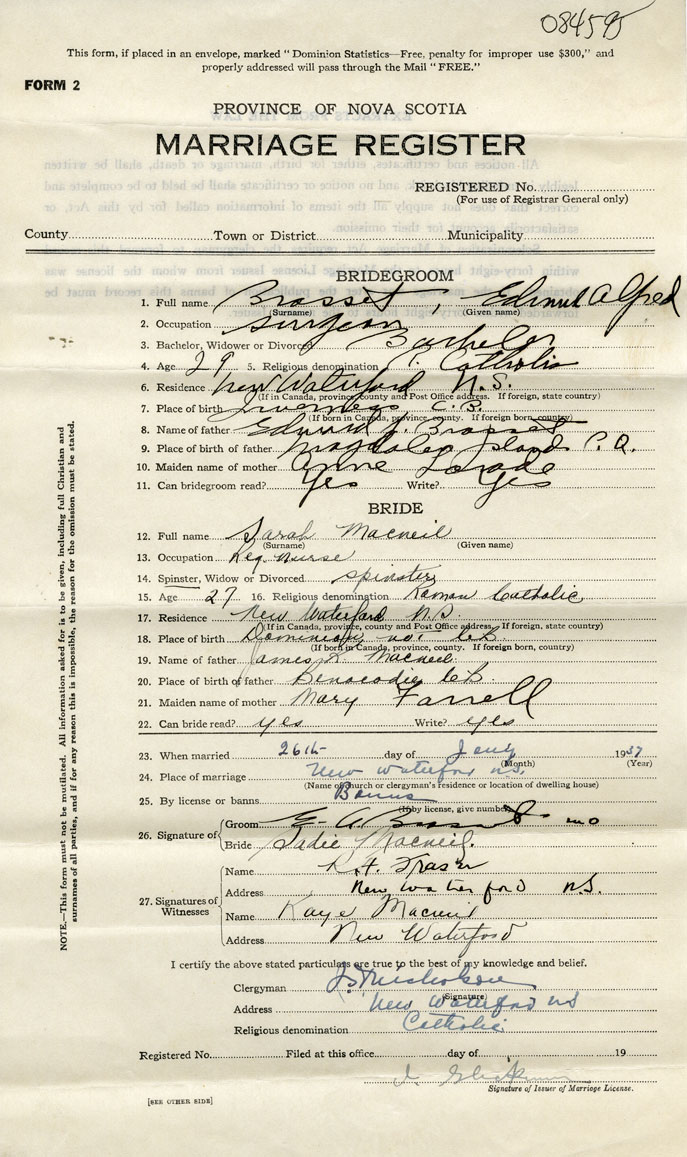 08459
This form, if placed in an envelope, marked "Dominion Statistics—Free, penalty for improper use $300," and
properly addressed will pass through the Mail "FREE."
FORM 2
PROVINCE OF NOVA SCOTIA
MARRIAGE REGISTER
REGISTERED No.
(For use of Registrar General only)
County Town or District Municipality
BRIDEGROOM
1. Full name Brasset, Edmund Alfred
(Surname) (Given name)
2. Occupation Surgeon
3. Bachelor, Widower or Divorced Bachelor
4. Age 29 5. Religious denomination Catholic
6. Residence New Waterford N.S.
(If in Canada, province, county and Post Office address. If foreign, state country)
7. Place of birth Inverness, C.B.
(If born in Canada, province, county. If foreign born, country)
8. Name of father Edmund J. Brasset
9. Place of birth of father Magdalen Islands P.Q.
10. Maiden name of mother Anne
11. Can bridegroom read? Yes Write? Yes
BRIDE
12. Full name Sarah Macneil
(Surname) (Given name)
13. Occupation Reg. Nurse
14. Spinster, Widow or Divorced spinster
15. Age 27 16. Religious denomination Roman Catholic
17. Residence New Waterford N.S.
(If in Canada, province, county and Post Office address. If foreign, state country)
18. Place of birth Dominion no. C.B.
(If born in Canada, province, county. If foreign born, country)
19. Name of father James Macneil
20. Place of birth of father Benacadie C.B.
21. Maiden name of mother Mary Farrell
22. Can bride read? yes Write? yes
23. When married 26th day of 1937
(Month) (Year)
24. Place of marriage New Waterford N.S.
(Name of church or clergyman's residence or location of dwelling house)
25. By license or banns Banns
(If by license, give number)
26. Signature of Groom E. A. Brasset MD
Bride Sadie Macneil.
27. Signatures of Witnesses
Name Fraser
Address New Waterford NS.
Name Kaye Macneil
Address New Waterford
I certify the above stated particulars are true to the best of my knowledge and belief.
Clergyman
(Signature)
Address New Waterford NS
Religious denomination Catholic
Registered No. Filed at this office day of 19
Signature of Issuer of Marriage License.
[SEE OTHER SIDE]
NOTE.—This form must not be mutilated. All information asked for is to be given, including full Christian and
surnames of all parties, and if for any reason this is impossible, the reason for the omission must be stated.